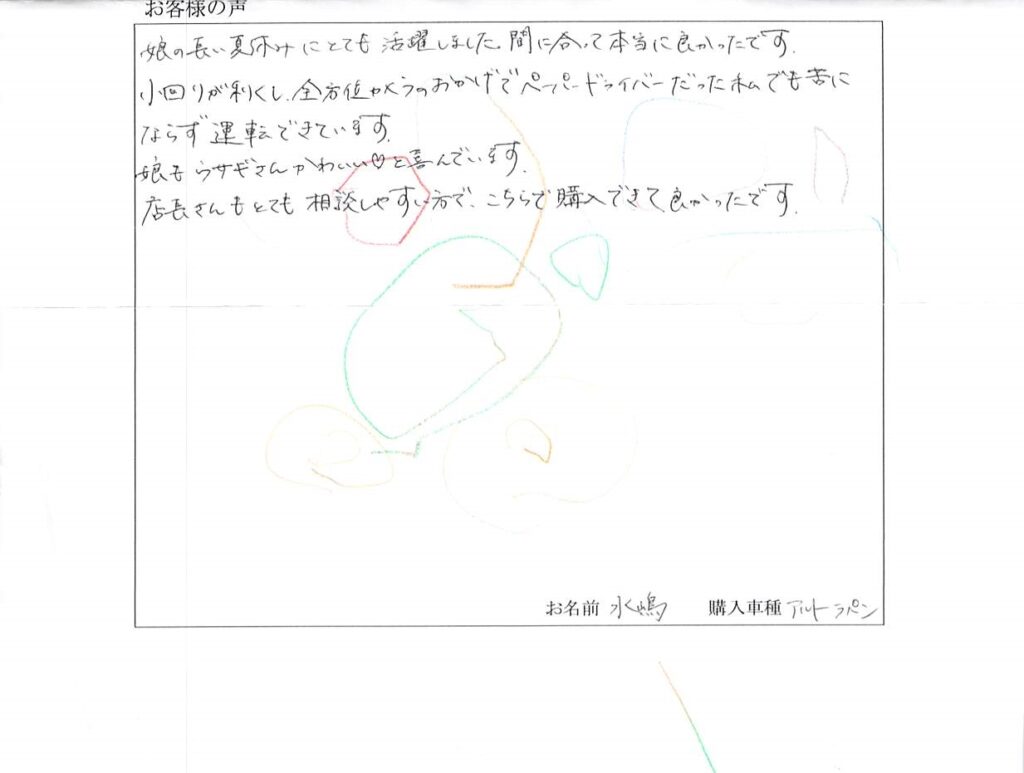 お客様の声
娘の長い夏休みにとても活躍しました。間に合って本当に良かったです。
小回りが利くし、全方位カメラのおかげでペーパードライバーだった私でも苦に
ならず運転できています。
娘もウサギさんかわいい♡と喜んでいます。
店長さんもとても相談しやすい方で、こちらで購入できて良かったです。
お名前 水嶋 購入車種 アルトラパン